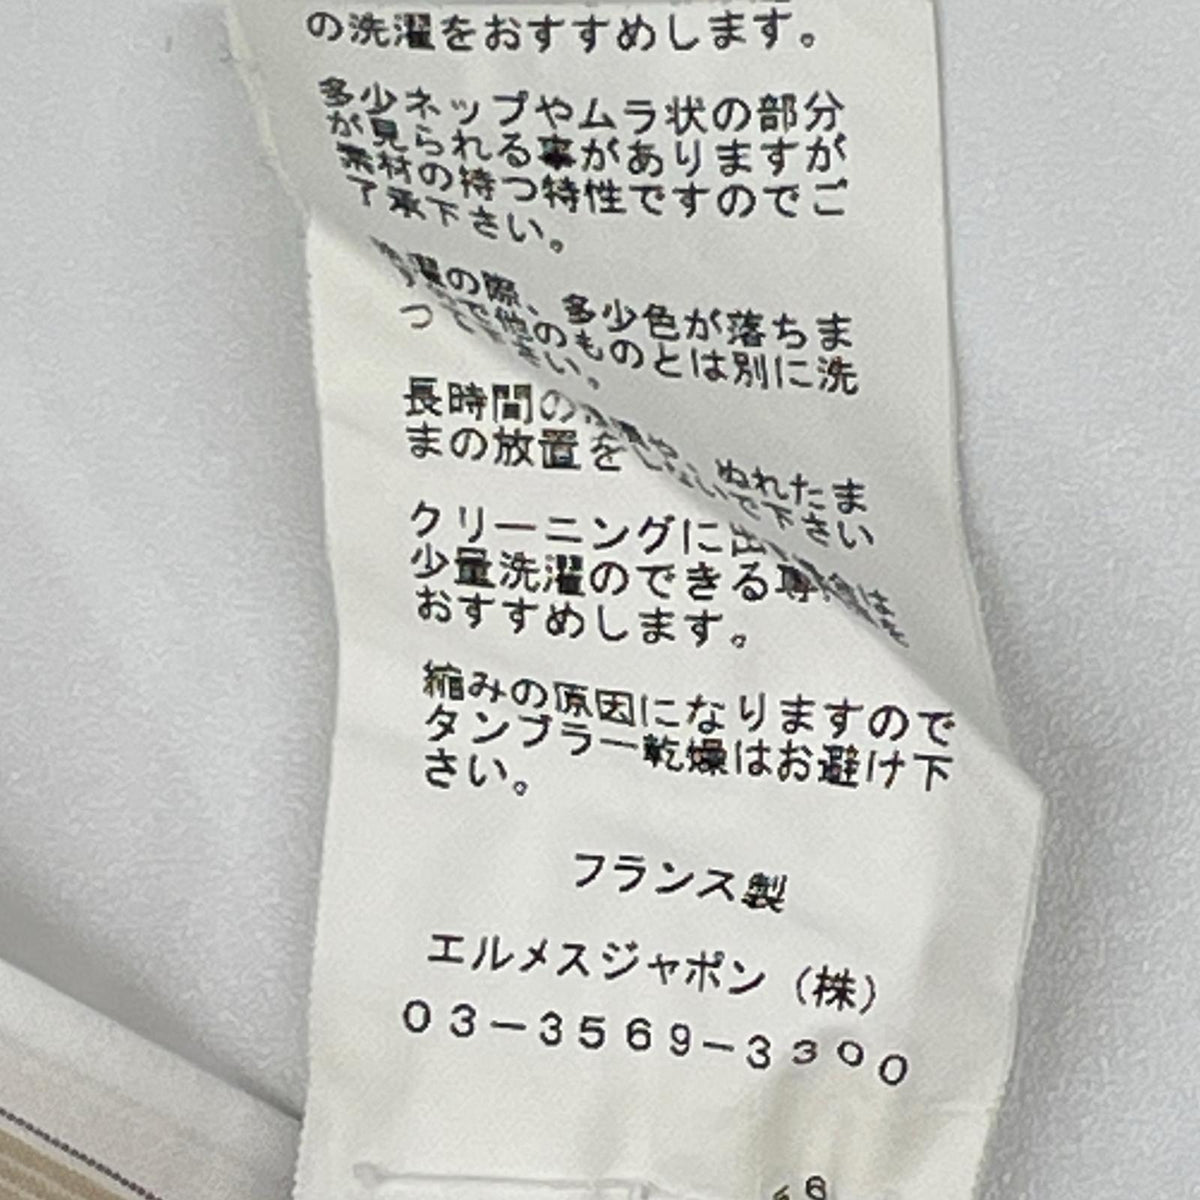 の洗濯をおすすめします。
多少ネップやムラ状の部分
が見られる事がありますが
素材の持つ特性ですのでご
了承下さい。
濯の際、多少色が落ちま
で他のものとは別に洗
って下さい。
長時間の
や、ぬれたま
まの放置をしないで下さい
クリーニングに出
少量洗濯のできる専
おすすめします。
縮みの原因になりますので
タンブラー乾燥はお避け下
さい。
フランス製
エルメスジャポン（株）
03-3569-3300
6